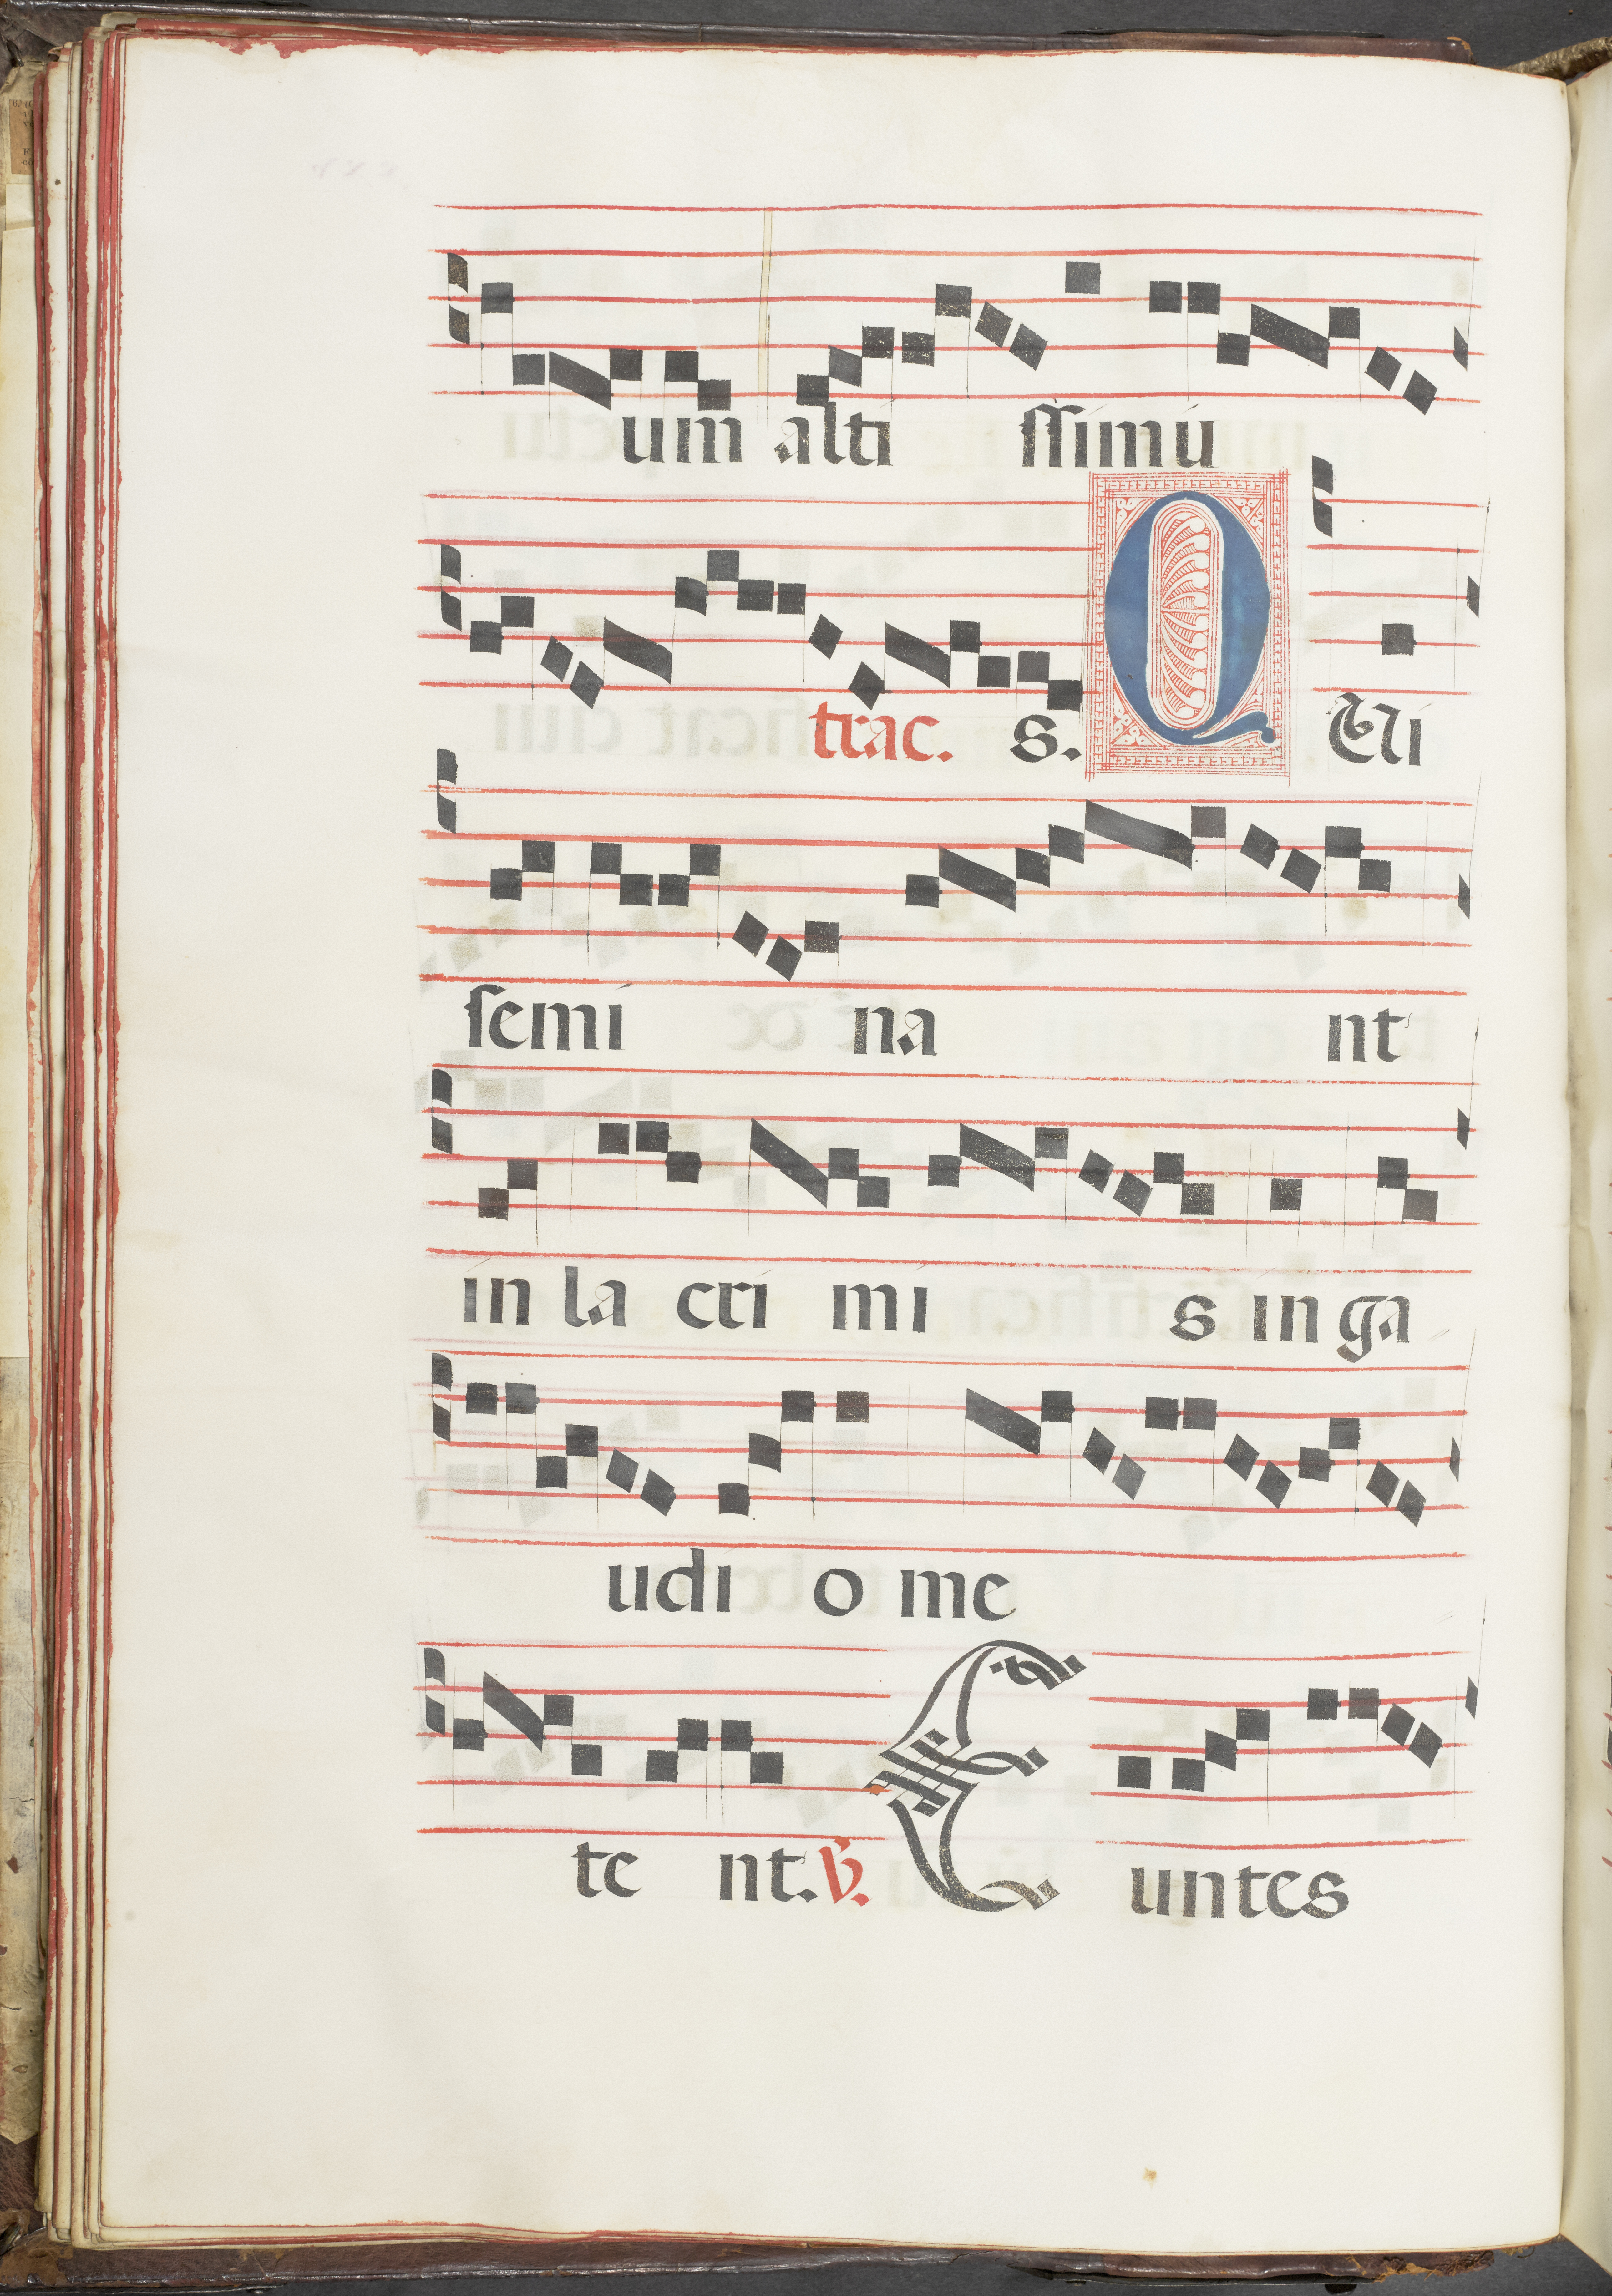 um alti ſſimu
trac. s. QUi
ſemi na nt
in la cri mi s in ga
udi o me
te nt. ℣. E untes